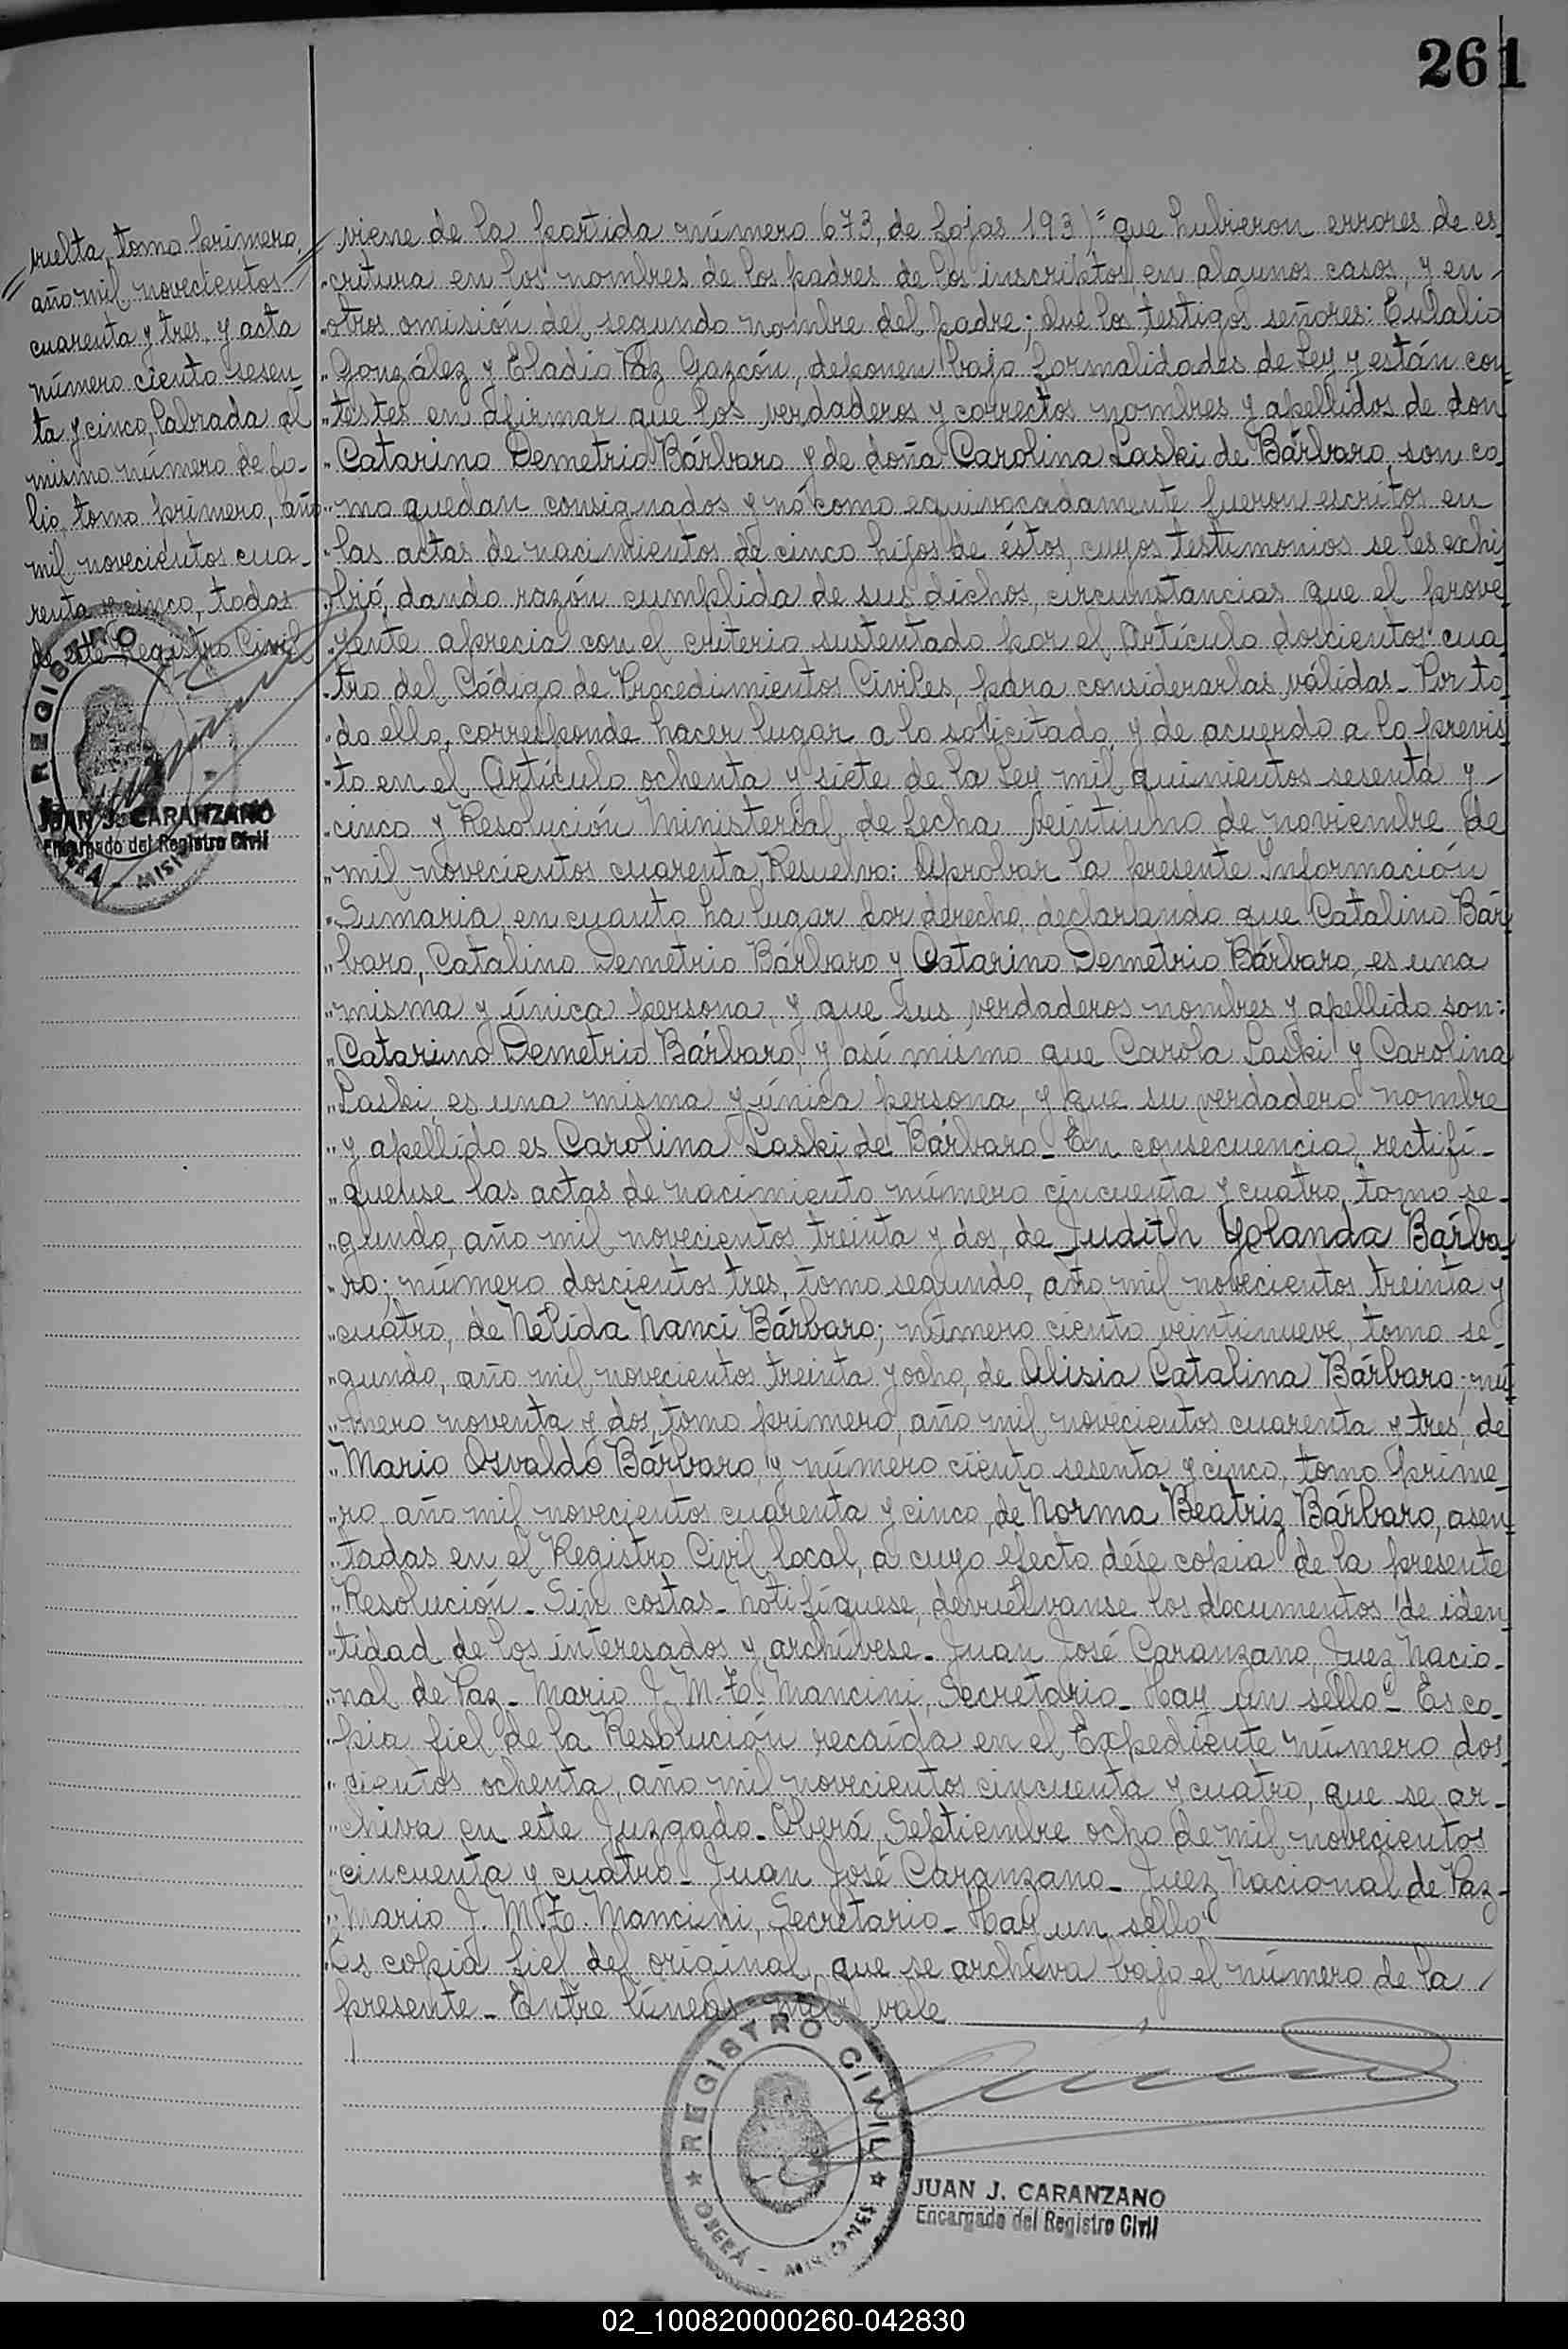 261
vuelta, tomo primero,
año mil novecientos
cuarenta y tres, y acta
número ciento sesen-
ta y cinco, labrada al
mismo número de fo-
lio, tomo primero, año
mil novecientos cua-
renta y cinco, todas
de este Registro Civil
REGISTRO
JUAN J. CARANZANO
Encargado del Registro Civil
viene de la partida número 673, de fojas 193)" que hubieron errores de es-
"critura en los nombres de los padres de los inscriptos, en algunos casos, y en
"otros omisión del segundo nombre del padre; que los testigos señores: Eulalio
"González y Eladio Paz Gazcón, deponen bajo formalidades de Ley y están con-
"testes en afirmar que los verdaderos y correctos nombres y apellidos de don
"Catarino Demetrio Bárbaro y de doña Carolina Laski de Bárbaro, son co-
"mo quedan consignados y nó como equivocadamente fueron escritos en
"las actas de nacimientos de cinco hijos de éstos, cuyos testimonios se les exhi-
"bió, dando razón cumplida de sus dichos, circunstancias que el prove-
"yente aprecia con el criterio sustentado por el Artículo doscientos cua-
"tro del Código de Procedimientos Civiles, para considerarlas válidas_ Por to-
"do ello, corresponde hacer lugar a lo solicitado, y de acuerdo a lo previs-
"to en el Artículo ochenta y siete de la Ley mil quinientos sesenta y
"cinco y Resolución Ministerial, de fecha veintiuno de noviembre de
"mil novecientos cuarenta, Resuelvo: Aprobar la presente Información
"Sumaria, en cuanto ha lugar por derecho, declarando que Catalino Bár-
"baro, Catalino Demetrio Bárbaro y Catarino Demetrio Bárbaro, es una
"misma y única persona, y que sus verdaderos nombres y apellido son:
"Catarino Demetrio Bárbaro, y así mismo que Carola Laski y Carolina
"Laski, es una misma y única persona, y que su verdadero nombre
"y apellido es Carolina Laski de Bárbaro_ En consecuencia, rectifí-
"quense las actas de nacimiento número cincuenta y cuatro, tomo se-
"gundo, año mil novecientos treinta y dos, de Judith Yolanda Bárba-
"ro; número doscientos tres, tomo segundo, año mil novecientos treinta y
"cuatro, de Nélida Nanci Bárbaro; número ciento veintinueve, tomo se-
"gundo, año mil novecientos treinta y ocho, de Alisia Catalina Bárbaro; nú-
"mero noventa y dos, tomo primero, año mil novecientos cuarenta y tres, de
"Mario Osvaldo Bárbaro, y número ciento sesenta y cinco, tomo prime-
"ro, año mil novecientos cuarenta y cinco, de Norma Beatriz Bárbaro, asen-
"tadas en el Registro Civil local, a cuyo efecto dése copia de la presente
"Resolución_ Sin costas_ Notifíquese, devuélvanse los documentos de iden-
"tidad de los interesados y archívese_ Juan José Caranzano, Juez Nacio-
"nal de Paz_ Mario J. M. T. Mancini, Secretario_ Hay un sello"_ Es co-
"pia fiel de la Resolución recaída en el Expediente número dos-
"cientos ochenta, año mil novecientos cincuenta y cuatro, que se ar-
"chiva en este Juzgado_ Oberá, Septiembre ocho de mil novecientos
"cincuenta y cuatro_ Juan José Caranzano_ Juez Nacional de Paz_
"Mario J. M. T. Mancini, Secretario_ Hay un sello"
Es copia fiel del original, que se archiva bajo el número de la
presente_ Entre líneas: mil, vale
REGISTRO CIVIL
OBERÁ - MISIONES
JUAN J. CARANZANO
Encargado del Registro Civil
02_100820000260-042830